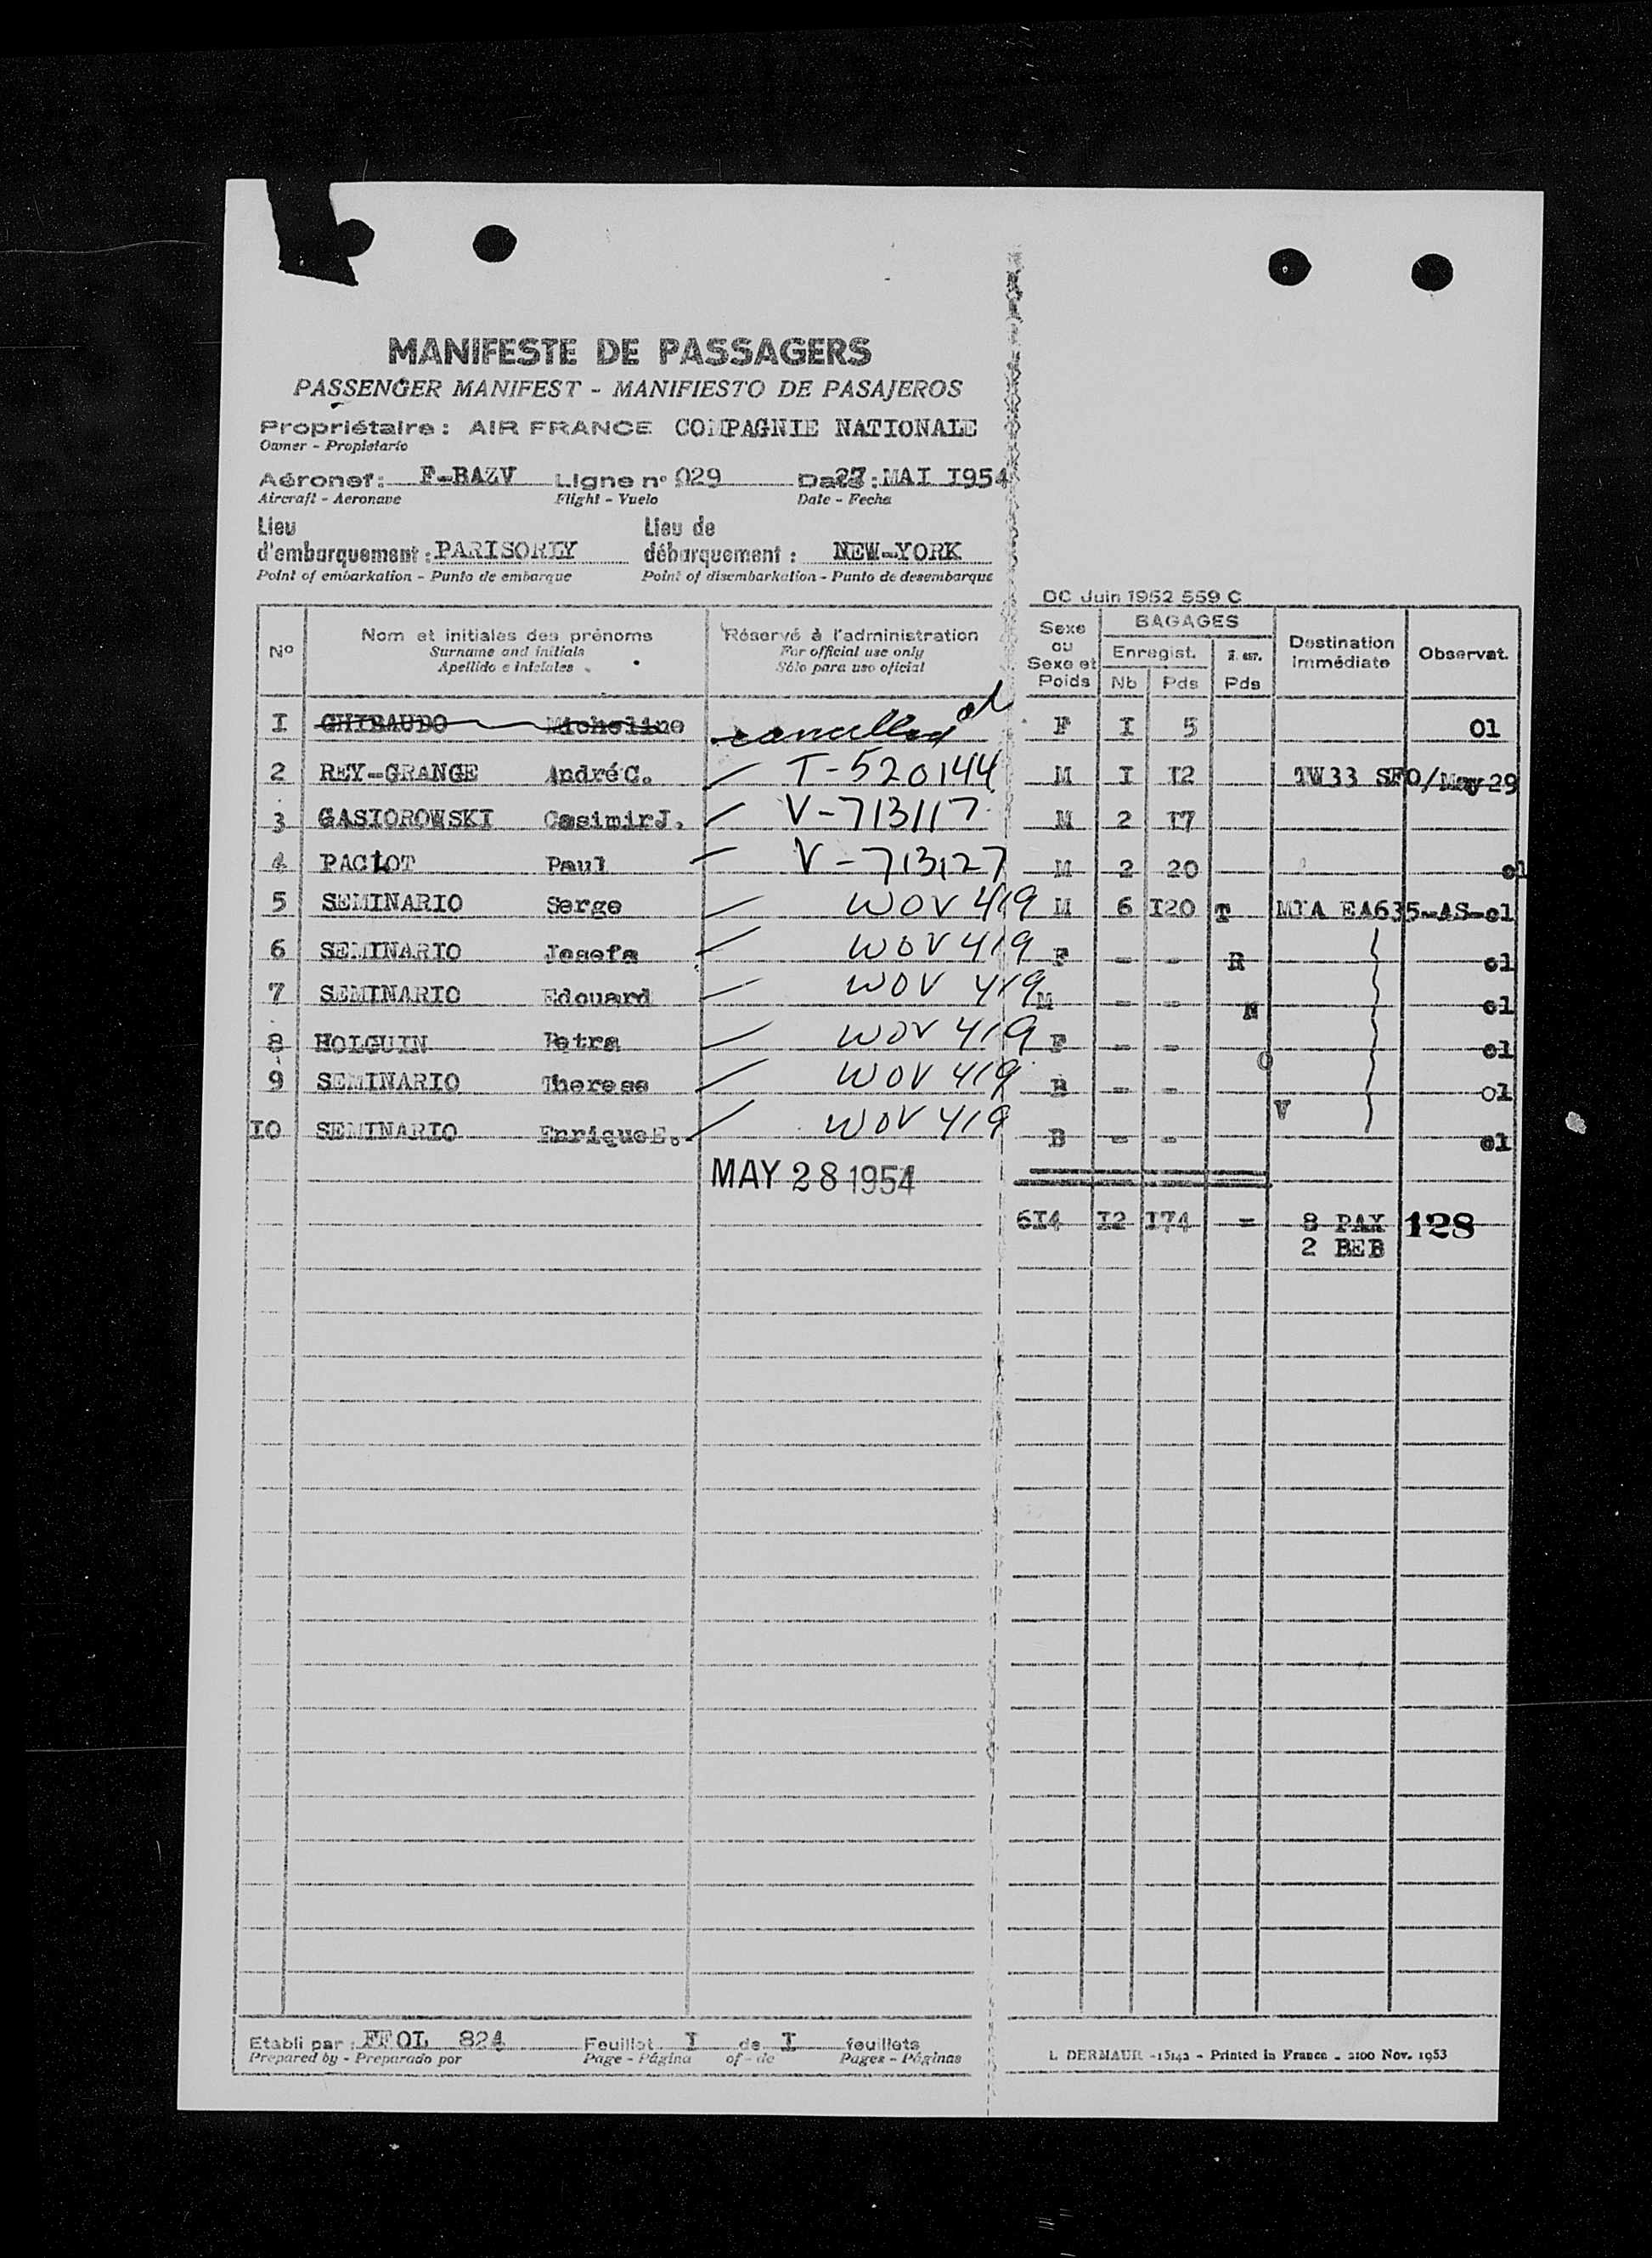 MANIFESTE DE PASSAGERS
PASSENGER MANIFEST - MANIFIESTO DE PASAJEROS
Propriétaire : AIR FRANCE COMPAGNIE NATIONALE
Owner - Propietario
Aéronef : F-BAZV Ligne n° 029 Date : 27 MAI I954
Aircraft - Aeronave Flight - Vuelo Date - Fecha
Lieu Lieu de
d'embarquement : PARISORLY débarquement : NEW-YORK
Point of embarkation - Punto de embarque Point of disembarkation - Punto de desembarque
DC Juin 1952 559 C
N° Nom et initiales des prénoms Réservé à l'administration Sexe ou Sexe et Poids BAGAGES Destination immédiate Observat.
Surname and initials For official use only Enregist.
Apellido e iniciales Sólo para uso oficial Nb Pds Pds
I GHIBAUDO Micheline cancelled F I 5 01
2 REY-GRANGE André C. T-520144 M I I2 TW33 SFO/May 29
3 GASIOROWSKI Casimir J. V-713117 M 2 I7
4 PACLOT Paul V-713127 M 2 20 cl
5 SEMINARIO Serge WOV 419 M 6 I20 T MIA EA635-AS-cl
6 SEMINARIO Josefa WOV 419 F - - R cl
7 SEMINARIO Edouard WOV 419 M - - N cl
8 HOLGUIN Petra WOV 419 F - - O cl
9 SEMINARIO Therese WOV 419 B - - 01
IO SEMINARIO Enrique E. WOV 419 B - - V cl
MAY 28 1954
6I4 I2 I74 - 8 PAX 128
2 BEB
Etabli par : FFOL 824 Feuillet I de I feuillets
Prepared by - Preparado por Page - Página of - de Pages - Páginas
L DERMAUR - 15142 - Printed in France - 2100 Nov. 1953